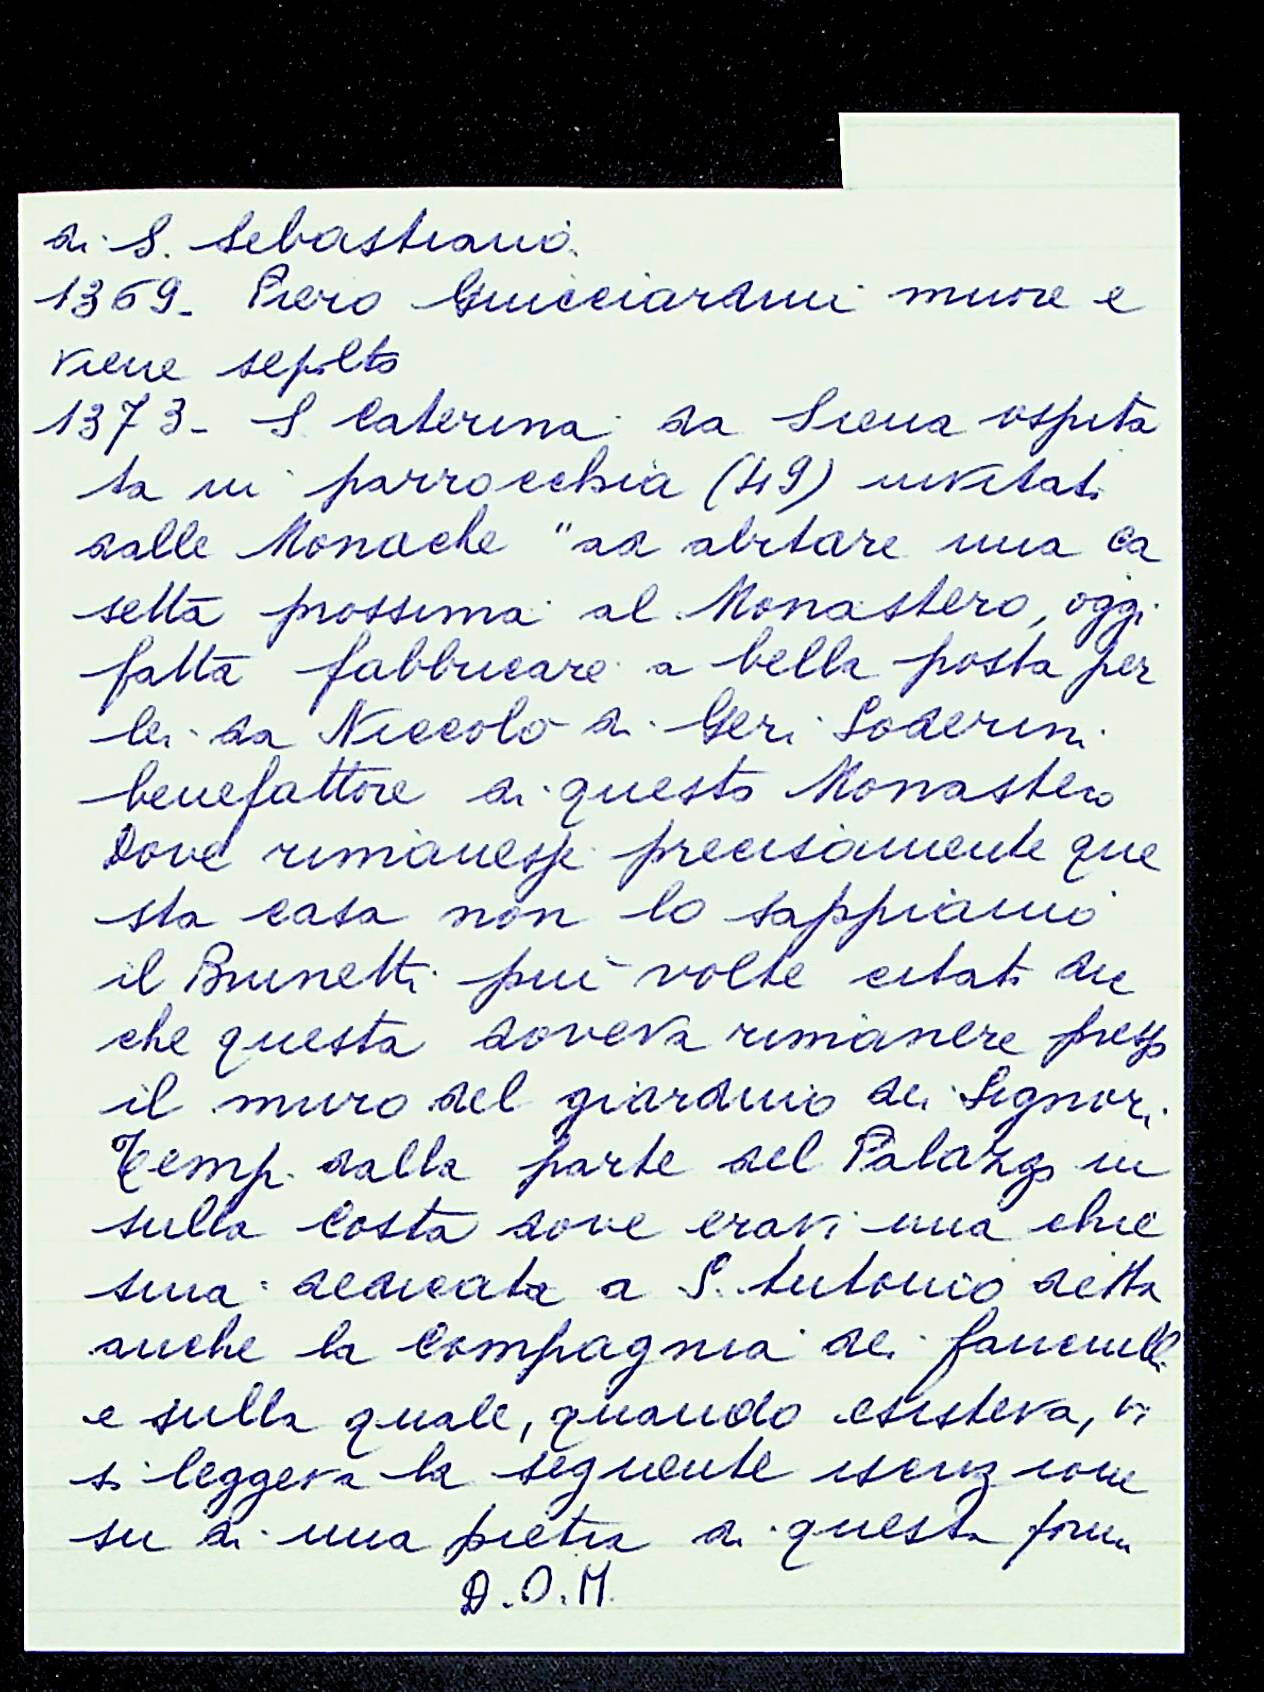 di S. Sebastiano.
1369- Piero Guicciardini muore e
viene sepolto
1373- S Caterina da Siena ospita
ta in parrocchia (49) invitati
dalle Monache "ad abitare una ca
setta prossima al Monastero, oggi
fatta fabbricare a bella posta per
lei da Niccolò di Geri Soderini
benefattore di questo Monastero
Dove rimanesse precisamente que
sta casa non lo sappiamo
il Brunetti più volte citato dice
che questa doveva rimanere presso
il muro del giardino dei Signori
Tempi dalla parte del Palazzo in
sulla Costa dove eravi una chie
sina dedicata a S. Antonio detta
anche la Compagnia dei fanciulli
e sulla quale, quando esisteva, vi
si leggeva la seguente iscrizione
su di una pietra di questa forma
D.O.M.